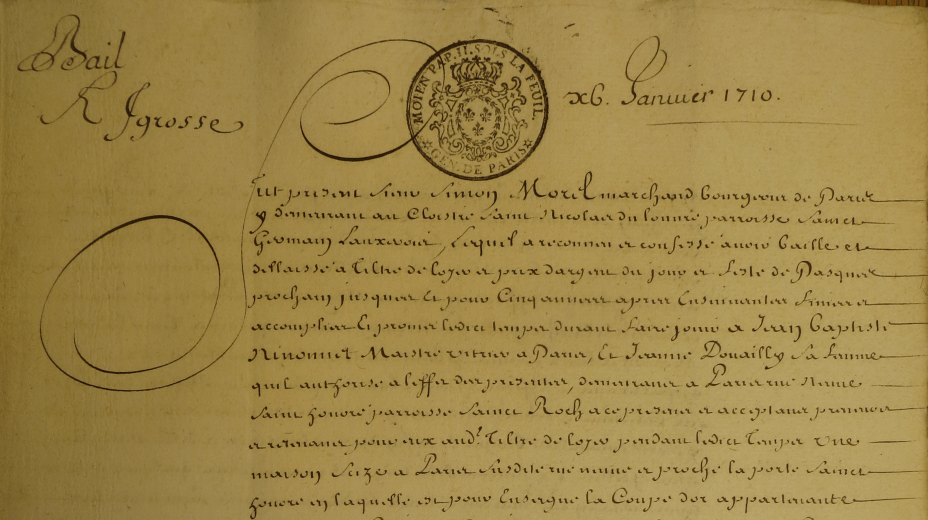 Bail
R 1 grosse
MOIEN PAP. II. SOLS LA FEUIL.
GEN. DE PARIS
xb. Januier 1710.
fut present sieur Simon Morel marchand bourgeois de Paris
y demeurant au Cloistre Saint Nicolas du louure parroisse Sainct
Germain Lauxerois, Lequel a reconneu et confesse auoir baille et
dellaisse a tiltre de loyer et prix dargent du jour et feste de Pasques
prochain jusques Et pour Cinq annees apres Ensuiuantes finies et
accomplies Et promet ledict temps durant faire jouir a Jean baptiste
Maistre vitrier a Paris, Et Jeanne Douailly Sa femme
quil authorise a leffet des presentes, demeurans a Paris rue neuue
Saint honoré parroisse Sainct Roch a ce presens et acceptans preneurs
et retenans pour eux aud. tiltre de loyer pendant ledict temps vne
maison Scize a Paris Susdite rue neuue et proche la porte Sainct
honoré en laquelle est pour Enseigne la Coupe dor appartenante